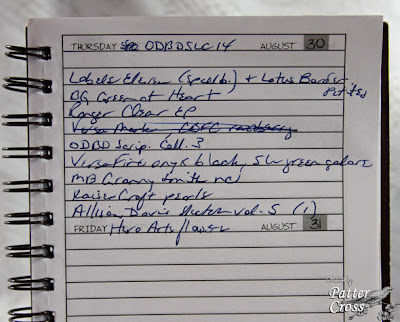 THURSDAY ODBDSLC14 AUGUST 30
Labels Eleven (spellb.) + Lotus Border
Petites
BG Green at Heart
Ranger Clear EP
Versa Marker, CDFC raspberry
ODBD Scrip. Coll. 3
VersaFine onyx black, SU green galore
MB Granny Smith nc
KaiserCraft pearls
Allison Davis Sketch vol. 5 (1)
FRIDAY Hero Arts flower AUGUST 31
Created by
Patter
Cross